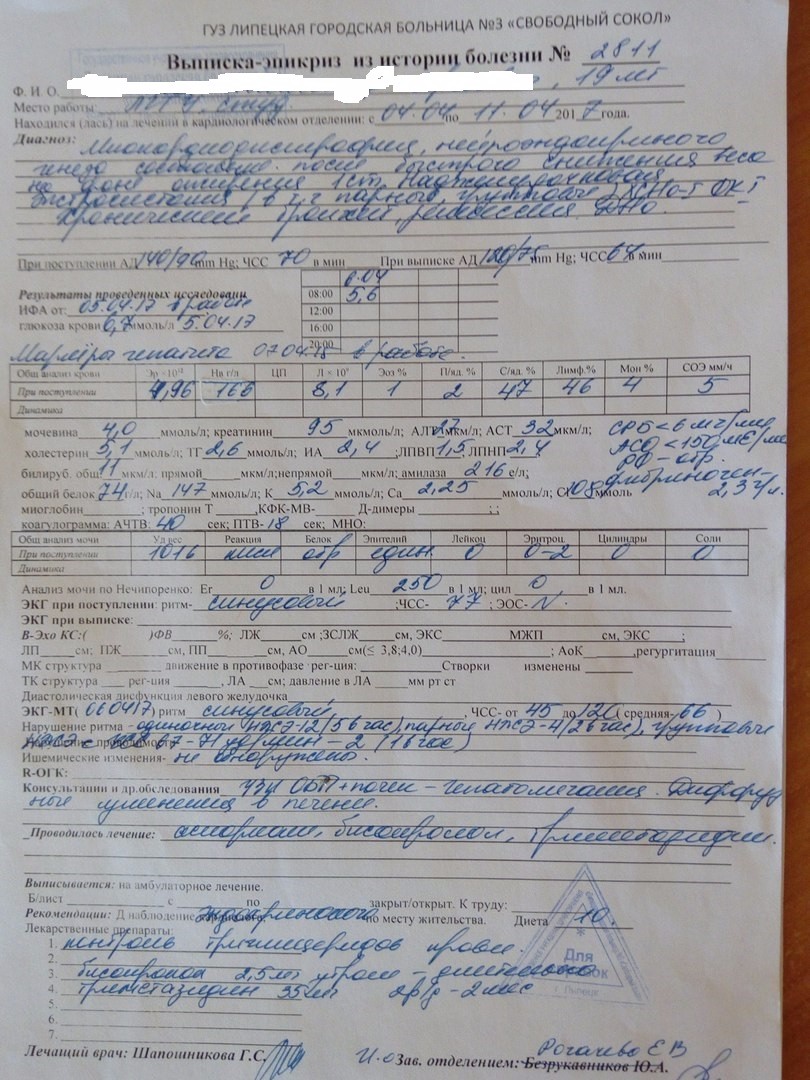 ГУЗ ЛИПЕЦКАЯ ГОРОДСКАЯ БОЛЬНИЦА №3 «СВОБОДНЫЙ СОКОЛ»
Выписка-эпикриз из истории болезни № 2811
Ф. И. О. , 19 лет
Место работы: студ.
Находился (лась) на лечении в кардиологическом отделении: с 04.04 по 11.04 2017 года.
Диагноз: Миокардиодистрофия, нейроэндокринного
генеза состояние после быстрого снижения веса
на фоне ожирения 1 ст. Наджелудочковая
экстрасистолия (в т.ч парные, групповые)
Хронический бронхит, ремиссия. ДН0.
При поступлении АД 140/90 mm Hg; ЧСС 70 в мин При выписке АД 120/75 mm Hg; ЧСС 64 в мин
6.04
Результаты проведенных исследований 08:00 5,6
ИФА от: 05.04.17 в работе 12:00
глюкоза крови 6,7 ммоль/л 5.04.17 16:00
20:00
Маркёры гепатита 07.04.15 в работе.
Общ анализ крови Эр ×10¹² Нв г/л ЦП Л × 10⁹ Эоз % П/яд. % С/яд. % Лимф.% Мон % СОЭ мм/ч
При поступлении 4,96 166 8,1 1 2 47 46 4 5
Динамика
мочевина 4,0 ммоль/л; креатинин 95 мкмоль/л; АЛТ 27 мкм/л; АСТ 32 мкм/л; СРБ < 6 мг/мл
холестерин 5,1 ммоль/л; ТГ 2,6 ммоль/л; ИА 2,4 ;ЛПВП 1,5 ЛПНП 2,4 АСО < 150 МЕ/мл
РФ - отр.
билируб. общ 11 мкм/л: прямой мкм/л;непрямой мкм/л; амилаза 216 е/л; фибриноген-
общий белок 74 г/л; Na 147 ммоль/л; К 5,2 ммоль/л; Са 2,25 ммоль/л; Cl 108 ммоль 2,3 г/л.
миоглобин ; тропонин Т ,КФК-МВ- Д-димеры ; ;
коагулограмма: АЧТВ: 40 сек; ПТВ- 18 сек; МНО:
Общ анализ мочи Уд вес Реакция Белок Эпителий Лейкоц Эритроц. Цилиндры Соли
При поступлении 1016 кисл отр един. 0 0-2 0 0
Динамика
Анализ мочи по Нечипоренко: Er 0 в 1 мл; Leu 250 в 1 мл; цил 0 в 1 мл.
ЭКГ при поступлении: ритм- синусовый ;ЧСС- 77 ; ЭОС- N .
ЭКГ при выписке:
В-Эхо КС:( )ФВ %; ЛЖ см ;ЗСЛЖ см, ЭКС МЖП см, ЭКС ;
ЛП см; ПЖ см, ПП см, АО см(≤ 3,8;4,0) ; АоК ,регургитация
МК структура движение в противофазе рег-ция: Створки изменены
ТК структура рег-ция , ЛА см; давление в ЛА мм рт ст
Диастолическая дисфункция левого желудочка
ЭКГ-МТ( 060417) ритм синусовый , ЧСС- от 45 до 120 (средняя- 66 )
Нарушение ритма - одиночные НЖЭ-12 (5 б час), парные НЖЭ-4 (2 б час), групповые
67-71 уд/мин - 2 (1 б час)
Ишемические изменения- не обнаружено.
R-ОГК:
Консультации и др.обследования УЗИ ОБП + почек - гепатомегалия. Диффуз
ные изменения в печени.
Проводилось лечение: аспаркам, бисопролол, триметазидин.
Выписывается: на амбулаторное лечение.
Б/лист с по закрыт/открыт. К труду:
Рекомендации: Д наблюдение эндокринолога по месту жительства. Диета 10.
Лекарственные препараты:
1. контроль триглицеридов крови.
2.
3. бисопролол 2,5 мг утром - длительно
4. триметазидин 35 мг 2р/д - 2 мес
5.
6.
7.
Для
Лечащий врач: Шапошникова Г.С.
И.о Зав. отделением: Безрукавников Ю.А.
Рогачева Е В